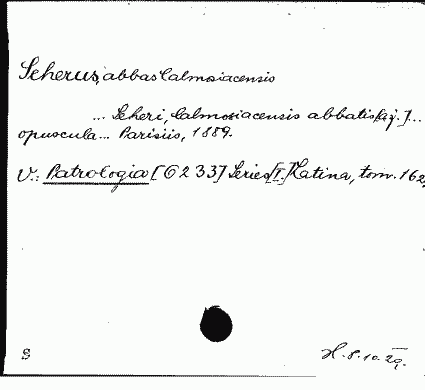 Seherus, abbas Calmosiacensis
... Seheri, Calmosiacensis abbatis ...
opuscula... Parisiis, 1889.
V.: Patrologia [6233] Series [I.] Latina, tom. 162,
S
H. 8.10.29.